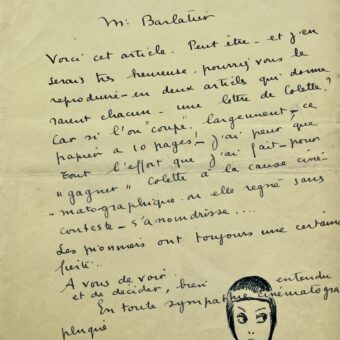 M. Barlatier
Voici cet article. Peut être - et j'en
serais très heureuse, pourriez vous le
reproduire - en deux articles qui donne
raient chacun - une lettre de Colette ?
Car si l'on "coupe" largement - ce
papier a 10 pages ! - j'ai peur que
tout l'effort que j'ai fait - pour
"gagner" Colette à la cause ciné-
matographique - où elle règne sans
conteste - s'amoindrisse....
Les pionniers ont toujours une certaine
fierté..
A vous de voir
et de décider, bien entendu
En toute sympathie cinématogra
phique